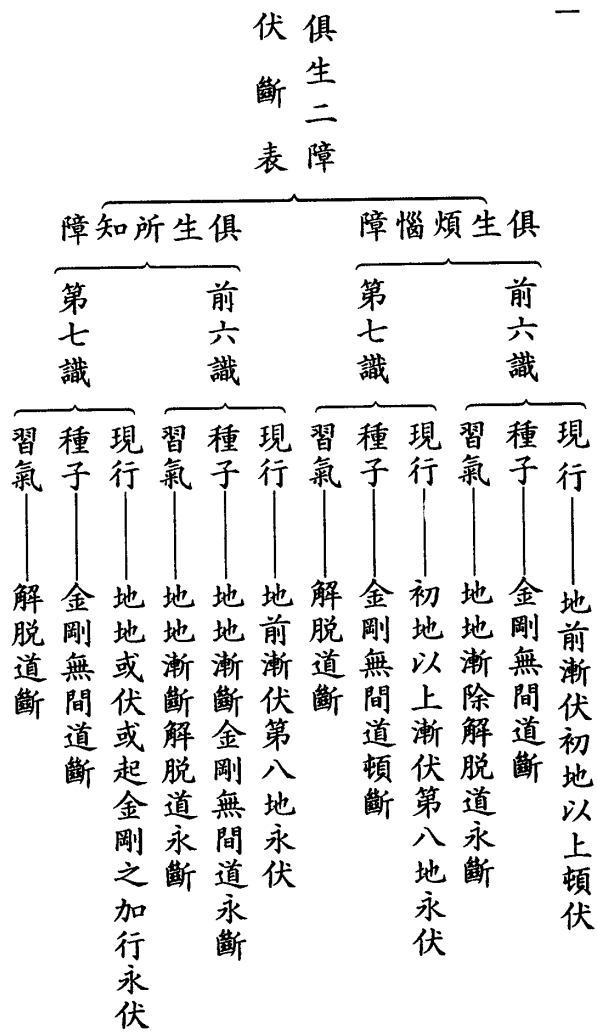 一
俱生二障
伏斷表
俱生煩惱障
前六識
現行
地前漸伏初地以上頓伏
種子
金剛無間道斷
習氣
地地漸除解脫道永斷
第七識
現行
初地以上漸伏第八地永伏
種子
金剛無間道頓斷
習氣
解脫道斷
俱生所知障
前六識
現行
地前漸伏第八地永伏
種子
地地漸斷金剛無間道永斷
習氣
地地漸斷解脫道永斷
第七識
現行
地地或伏或起金剛之加行永伏
種子
金剛無間道斷
習氣
解脫道斷